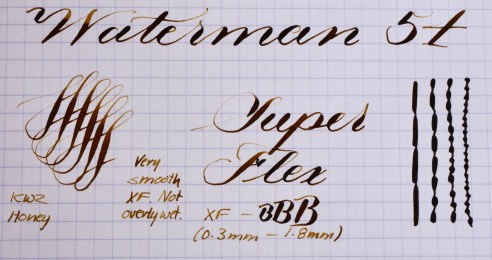 Waterman 52
Super
Flex
Very
smooth
XF. Not
overly wet.
KWZ
Honey
XF - BBB
(0.3mm - 1.8mm)